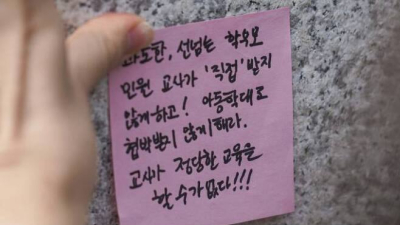 과도한, 선넘는 학부모
민원 교사가 '직접' 받지
않게하고! 아동학대로
협박받지 않게해라.
교사가 정당한 교육을
할 수가 없다!!!